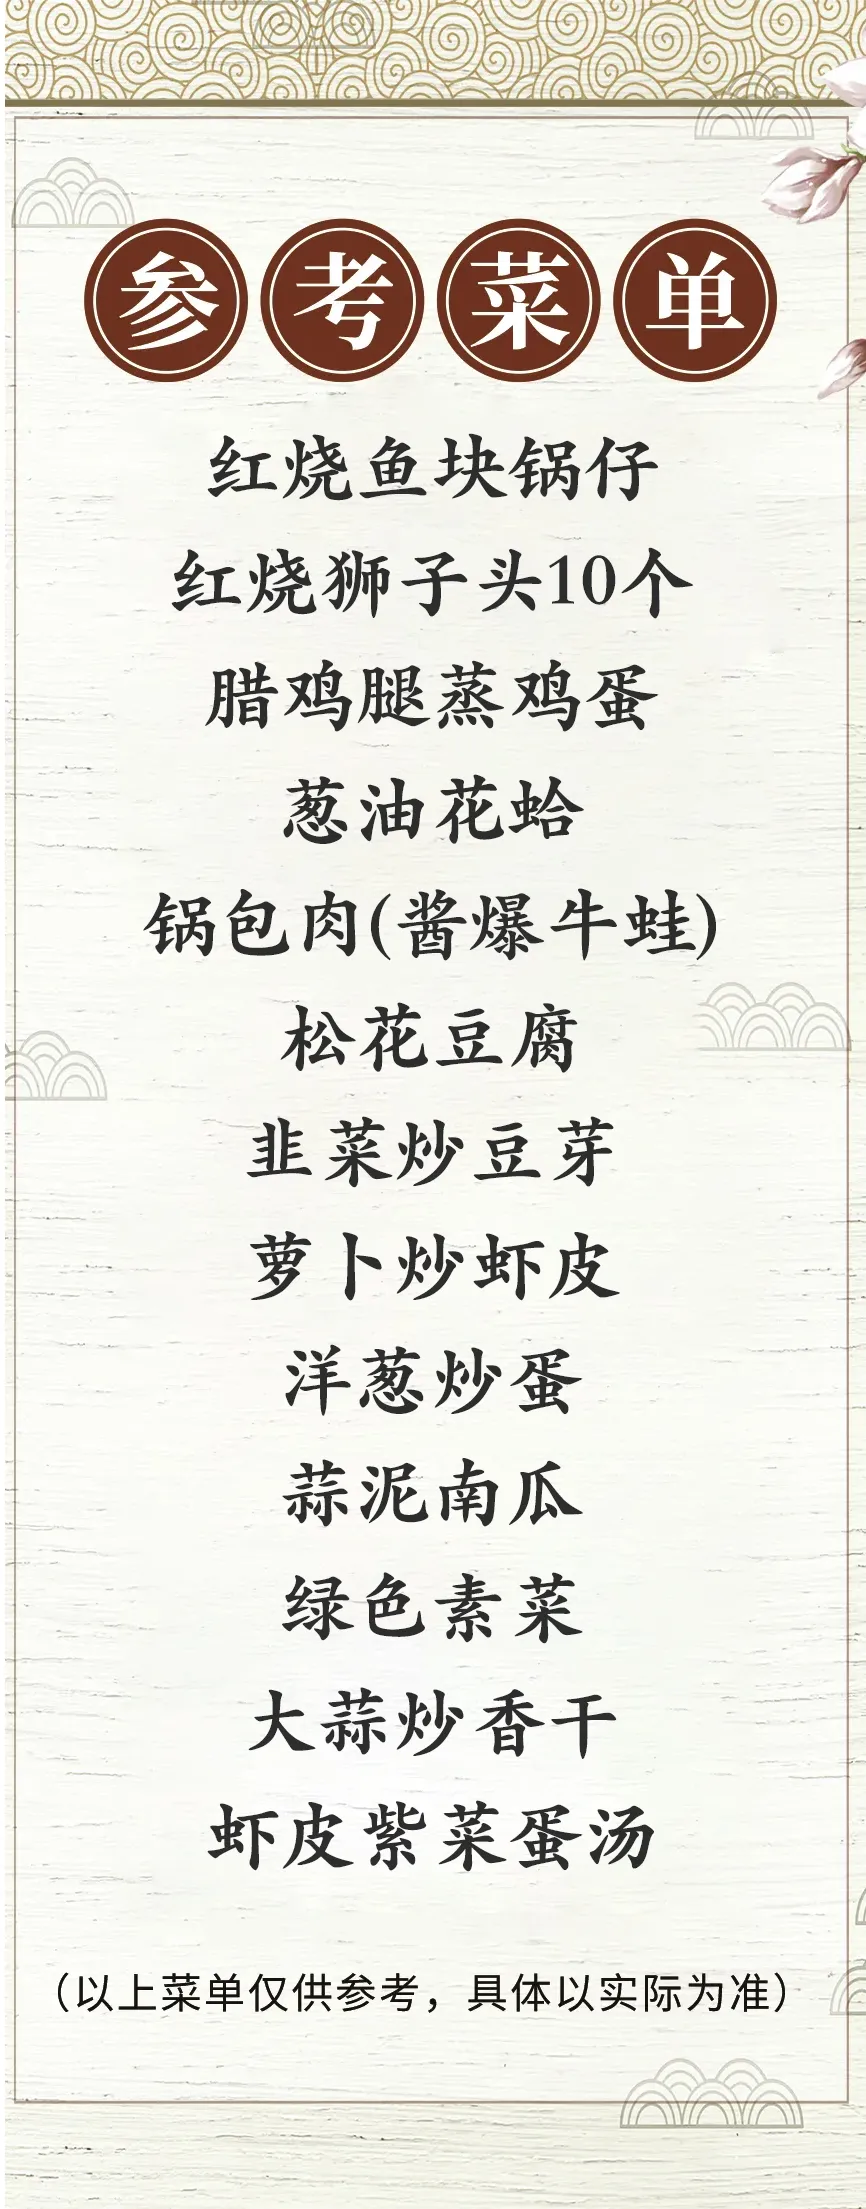 参考菜单
红烧鱼块锅仔
红烧狮子头10个
腊鸡腿蒸鸡蛋
葱油花蛤
锅包肉(酱爆牛蛙)
松花豆腐
韭菜炒豆芽
萝卜炒虾皮
洋葱炒蛋
蒜泥南瓜
绿色素菜
大蒜炒香干
虾皮紫菜蛋汤
（以上菜单仅供参考，具体以实际为准）